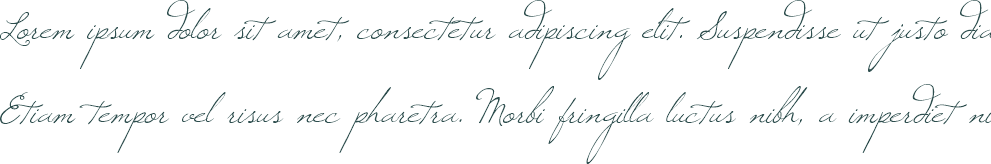 Lorem ipsum dolor sit amet, consectetur adipiscing elit. Suspendisse ut justo dia
Etiam tempor vel risus nec pharetra. Morbi fringilla luctus nibh, a imperdiet ni